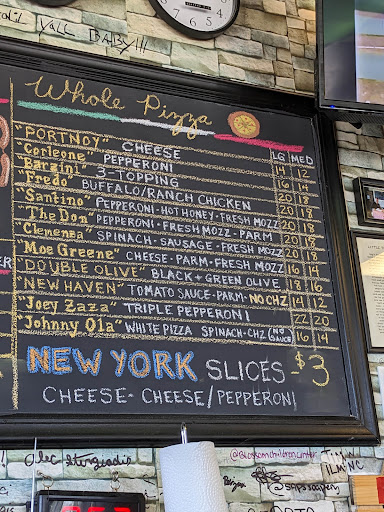 VALL BABY!!!
Whole Pizza
LG MED
"PORTNOY" CHEESE 14 12
"Corleone" PEPPERONI 16 14
"Barzini" 3-TOPPING 20 18
"Fredo" BUFFALO/RANCH CHICKEN 20 18
"Santino" PEPPERONI·HOT HONEY·FRESH MOZZ 20 18
"The Don" PEPPERONI·FRESH MOZZ·PARM 20 18
"Clemenza" SPINACH·SAUSAGE·FRESH MOZZ 20 18
"Moe Greene" CHEESE·PARM·FRESH MOZZ 16 14
"DOUBLE OLIVE" BLACK + GREEN OLIVE 18 16
"NEW HAVEN" TOMATO SAUCE·PARM·NO CHZ 14 12
"Joey Zaza" TRIPLE PEPPERONI 22 20
"Johnny Ola" WHITE PIZZA SPINACH·CHZ (NO SAUCE) 16 14
NEW YORK SLICES -$3
CHEESE- CHEESE/PEPPERONI